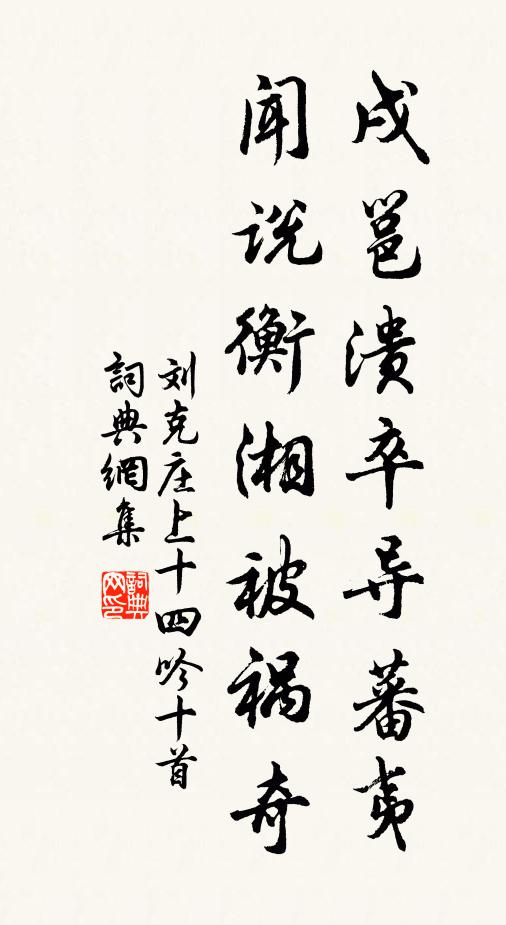 戍邕溃卒导蕃夷
闻说衡湘被祸奇
刘克庄上十四吟十首
詞典網集
詞典网印